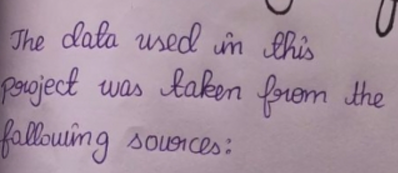 The data used in this
project was taken from the
following sources: